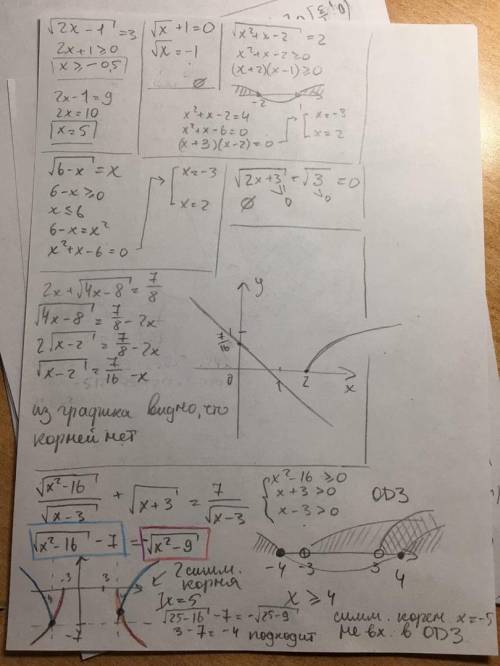 √2x-1 = 3
2x+1≥0
x≥-0,5
2x-1=9
2x=10
x=5
√x +1=0
√x = -1
∅
√x²+x-2 = 2
x²+x-2≥0
(x+2)(x-1)≥0
-2 1
x²+x-2=4
x²+x-6=0
(x+3)(x-2)=0
x=-3
x=2
√6-x = x
6-x≥0
x≤6
6-x=x²
x²+x-6=0
x=-3
x=2
√2x+3 + √3 = 0
∅ 0 0
2x+√4x-8 = 7/8
√4x-8 = 7/8 - 2x
2√x-2 = 7/8 - 2x
√x-2 = 7/16 - x
из графика видно, что
корней нет
y
1
7/16
0 1 2 x
√x²-16/√x-3 + √x+3 = 7/√x-3
x²-16≥0
x+3>0
x-3>0
ОДЗ
√x²-16 - 7 = -√x²-9
-4 -3 3 4
x≥4
-3 3 4
-7
2 симм.
корня
x=5
√25-16 - 7 = -√25-9
3-7=-4 подходит
симм. корень x=-5
не вх. в ОДЗ